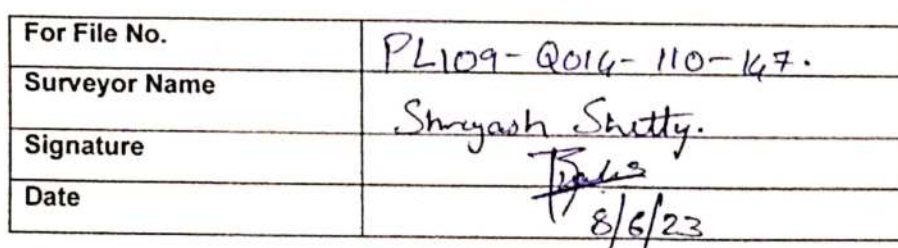 For File No. PL109-Q014-110-147.
Surveyor Name Shreyash Shetty.
Signature
Date 8/6/23